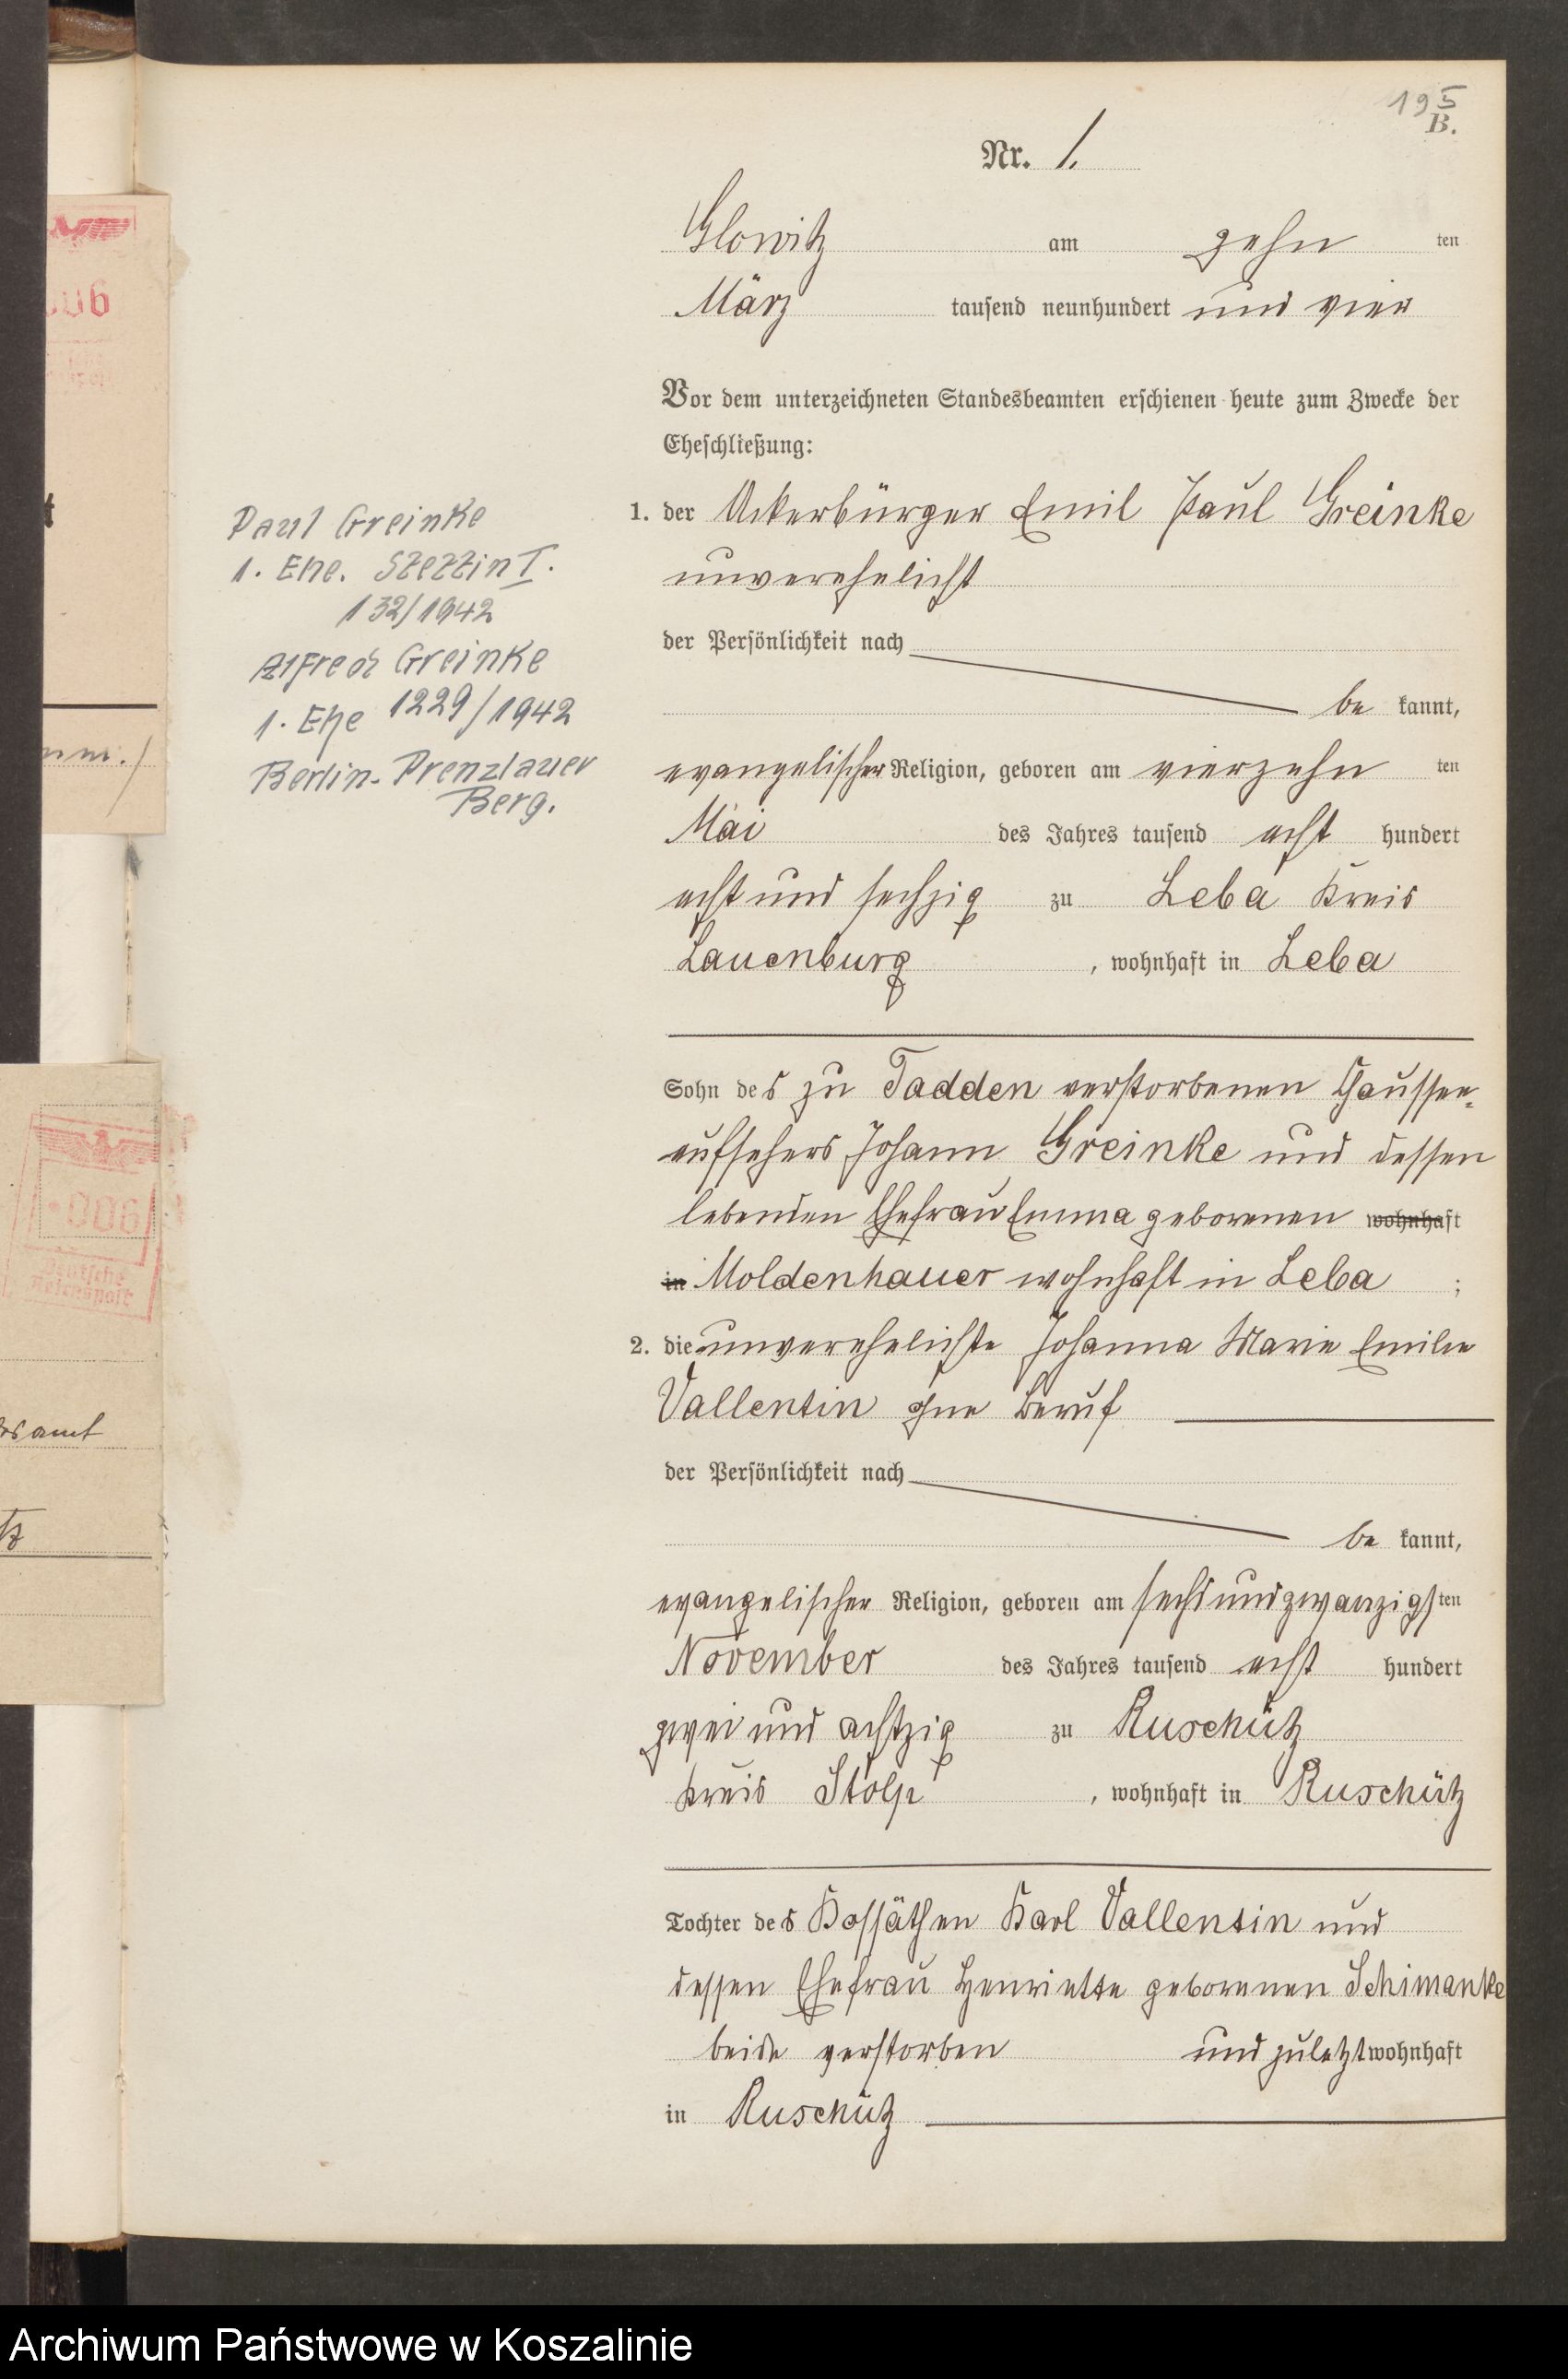 195
B.
Nr. 1.
Glowitz am zehn ten
März tausend neunhundert und vier
Vor dem unterzeichneten Standesbeamten erschienen heute zum Zwecke der
Eheschließung:
1. der Ackerbürger Emil Paul Greinke
unverehelicht
der Persönlichkeit nach
be kannt,
evangelischer Religion, geboren am vierzehn ten
Mai des Jahres tausend acht hundert
acht und sechzig zu Leba Kreis
Lauenburg, wohnhaft in Leba
Sohn des zu Tadden verstorbenen Chaussee-
aufsehers Johann Greinke und dessen
lebenden Ehefrau Emma geborenen wohnhaft
in Moldenhauer wohnhaft in Leba ;
2. die unverehelichte Johanna Marie Emilie
Vallentin ohne Beruf
der Persönlichkeit nach
be kannt,
evangelischer Religion, geboren am sechsundzwanzigsten
November des Jahres tausend acht hundert
zwei und achtzig zu Ruschütz
Kreis Stolp, wohnhaft in Ruschütz
Tochter des Kossäthen Karl Vallentin und
dessen Ehefrau Henriette geborenen Schimanke
beide verstorben und zuletzt wohnhaft
in Ruschütz
Paul Greinke
1. Ehe. Stettin I.
132/1942
Alfred Greinke
1. Ehe 1229/1942
Berlin-Prenzlauer
Berg.
006
Deutsche
Reichspost
samt
tz
Archiwum Państwowe w Koszalinie